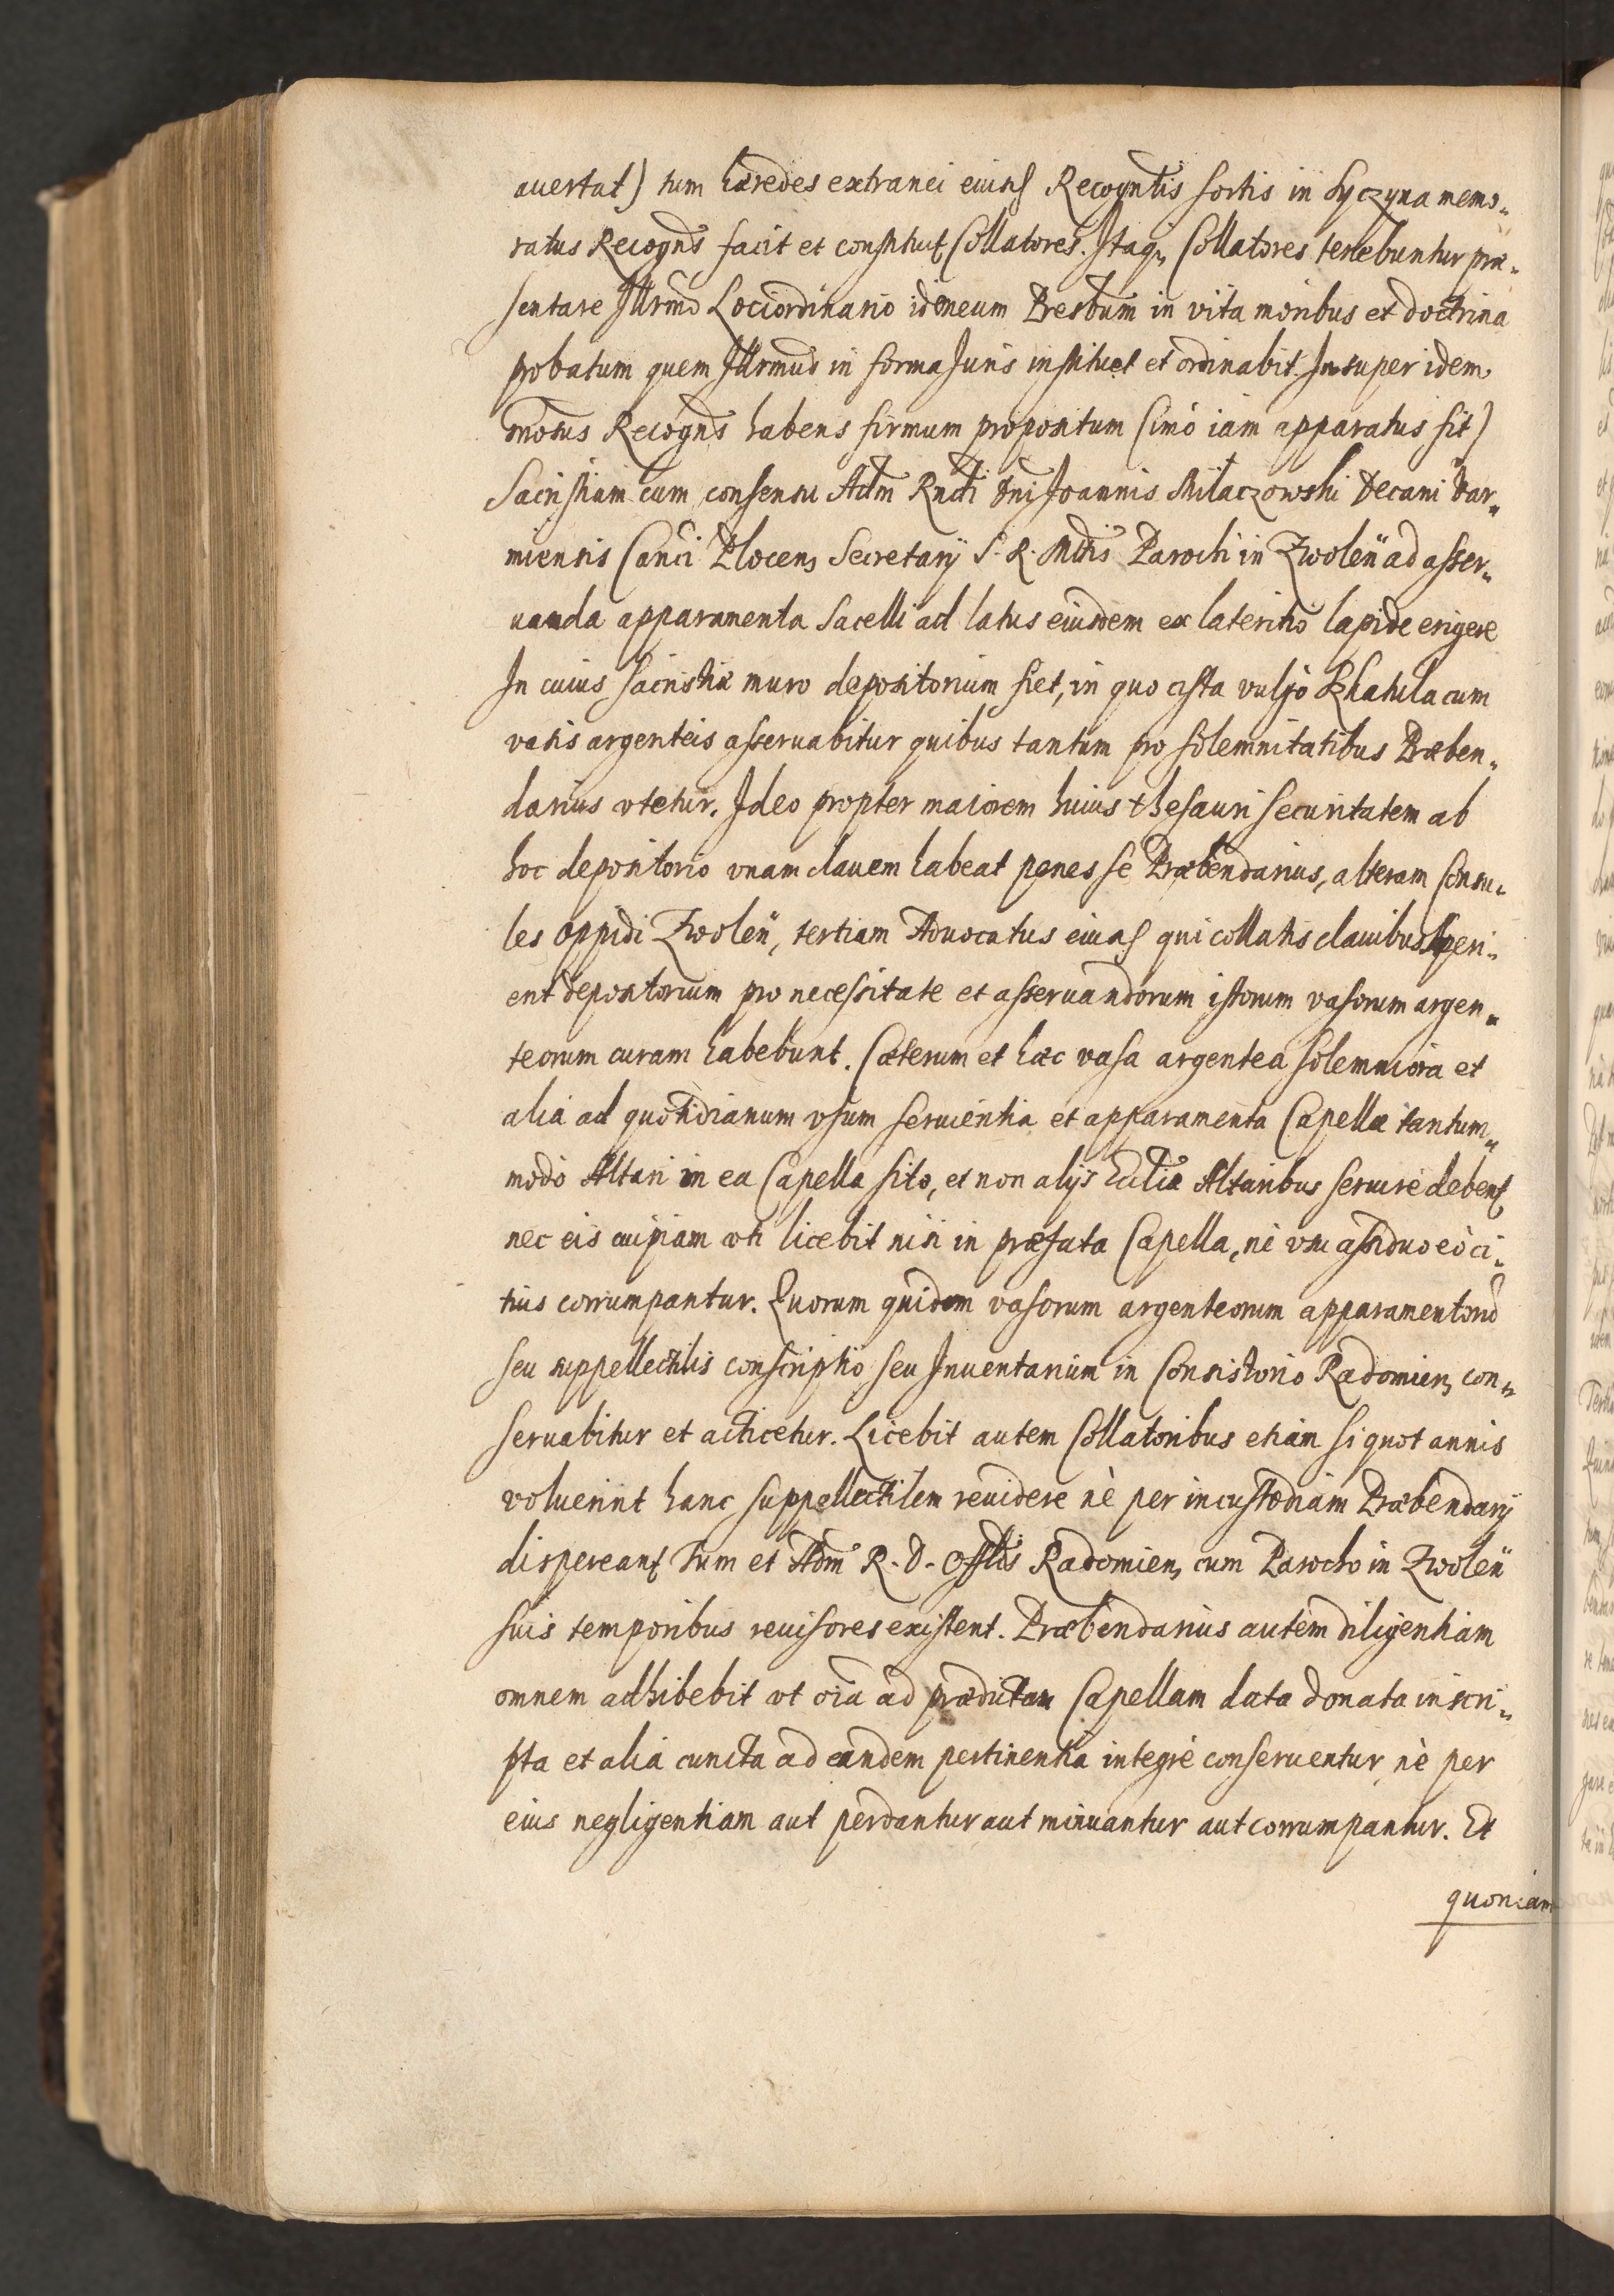 auertat) tum hæredes extranei eiusd Recogntis sortis in Syczyna memo„
ratus Recogns facit et constituit Collatores. Itaq, Collatores tenebuntur præ„
sentare Illrmo Lociordinario idoneum Presbrum in vita moribus et doctrina
probatum quem Illrmus in forma Juris instituet et ordinabit. Insuper idem
Recogns habens firmum propositum (imò iam apparatus sit)
Sacristiam cum consensu Adm Rndi Dni Joannis Milaczowski Decani Var„
miensis Canci Plocens Secretarÿ S. R. Mttis Parochi in Zwoleń ad asser„
uanda apparamenta Sacelli ad latus eiusdem ex lateritio lapide erigere
In cuius Sacristiæ muro depositorium fiet, in quo cista vulgò Szkatula cum
vasis argenteis asseruabitur quibus tantum pro solemnitatibus Præben„
darius vtetur. Ideo propter maiorem huius thesauri securitatem ab
hoc depositorio vnam clauem habeat penes se Præbendarius, alteram Consu„
les oppidi Zwoleń, tertiam Aduocatus eiusd qui collatis clauibus Aperi„
ent depositorium pro necessitate et asseruandorum istorum vasorum argen„
teorum curam habebunt. Cæterum et hæc vasa argentea solemniora et
alia ad quotidianum vsum seruientia et apparamenta Capellæ tantum„
modò Altari in ea Capella sito, et non alÿs Ecclie Altaribus seruire debent
nec eis cuipiam vti licebit nisi in præfata Capella, nè vsu assiduo eò ci„
tius corrumpantur. Quorum quidem vasorum argenteorum apparamentorũ
seu suppellectilis conscriptio seu Inuentarium in Consistorio Radomiens con„
seruabitur et acticetur. Licebit autem Collatoribus etiam si quot annis
voluerint hanc suppellectilem reuidere nè per incustodiam Præbendarÿ
dispereant tum et Adm R. D. Offlis Radomiens cum Parocho in Zwoleń
suis temporibus reuisores existent. Præbendarius autem diligentiam
omnem adhibebit vt oĩa ad prædictam Capellam data donata inscri„
pta et alia cuncta ad eandem pertinentia integrè conseruentur nè per
eius negligentiam aut perdantur aut minuantur aut corrumpantur. Et
quoniam